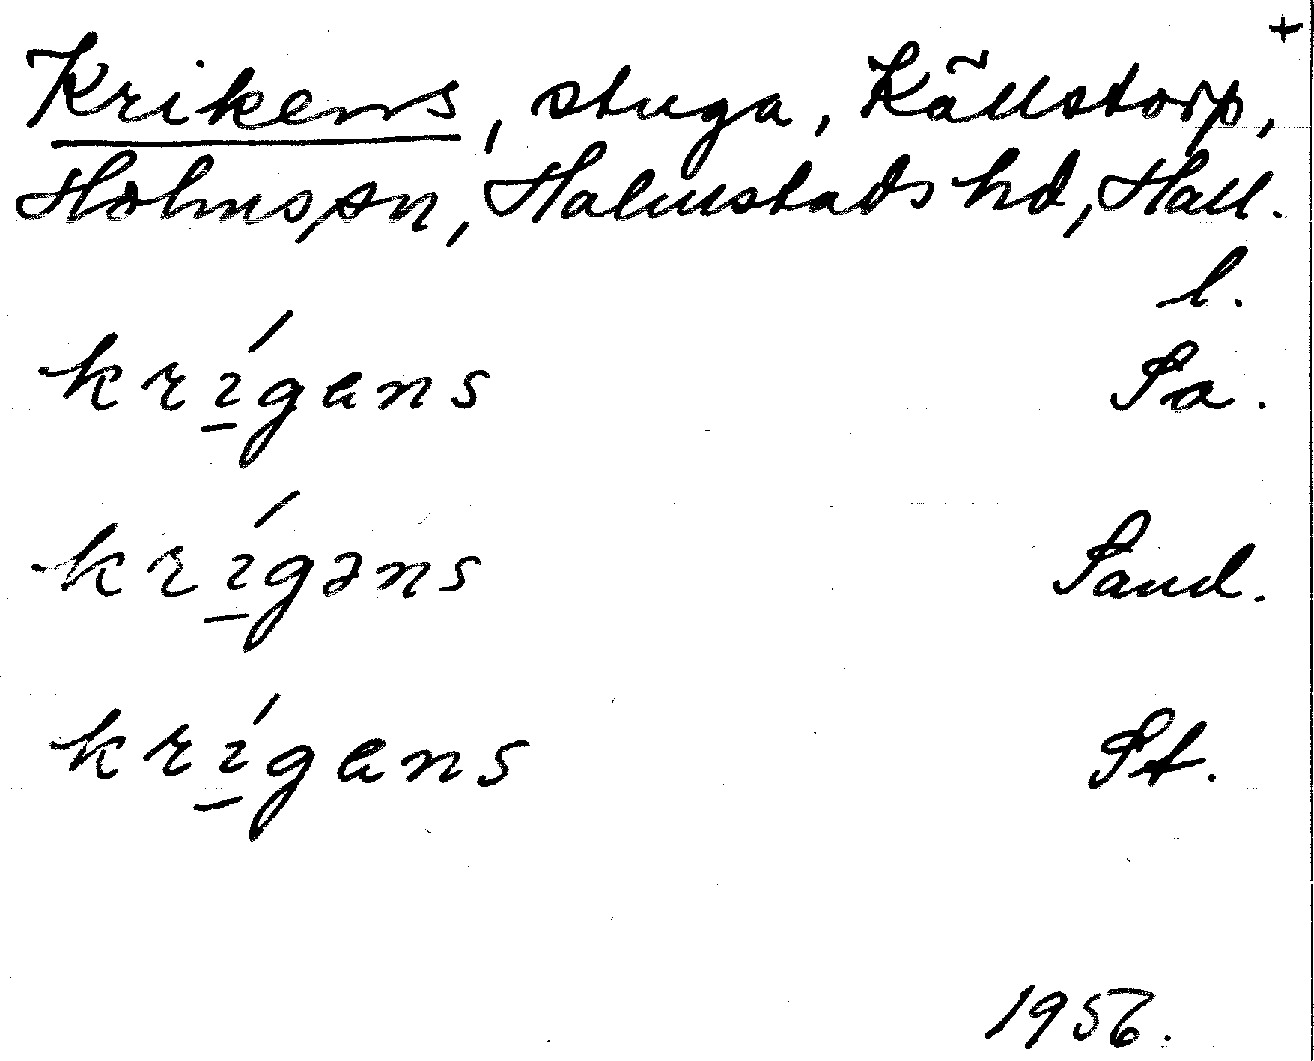 +
Krikens, stuga, Källstorp,
Holms sn, Halmstads hd, Hall.
l.
krígans Sa.
krígəns Sand.
krígans St.
1956.